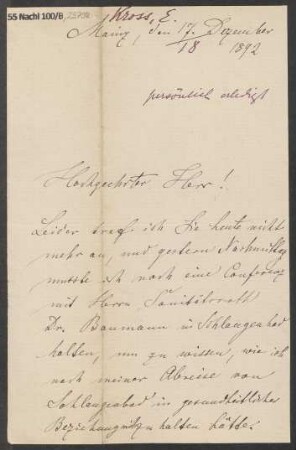 55 Nachl 100/B,
Kross, E.
Mainz, den 17. Dezember
18 1892
persönlich erledigt
Hochgeehrter Herr!
Leider traf ich Sie heute nicht
mehr an, und gestern Nachmittag
musste ich noch eine Conferenz
mit Herrn Sanitätsrath
Dr. Baumann in Schlangenbad
halten, um zu wissen, wie ich
nach meiner Abreise von
Schlangenbad in gesundheitlicher
Beziehung zu halten hätte.